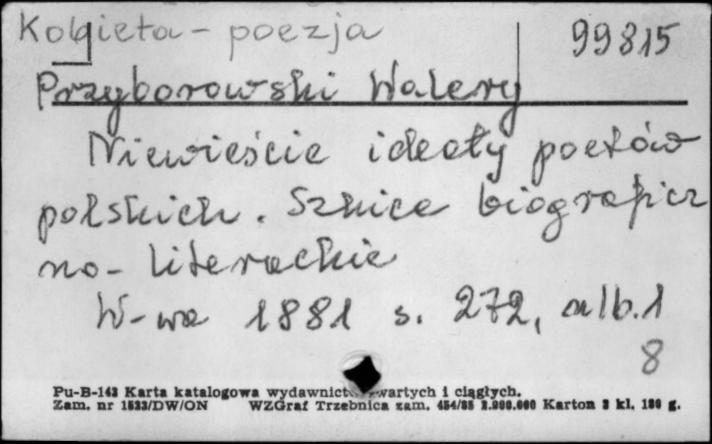 Kobieta - poezja
99815
Przyborowski Walery
Niewieście ideały poetów
polskich. Szkice biograficz
no-literackie
W-wa 1881 s. 272, alb. 1
8
Pu-B-143 Karta katalogowa wydawnictw zwartych i ciągłych.
Zam. nr 1523/DW/ON WZGraf Trzebnica zam. 454/85 2.000.000 Karton 3 kl. 180 g.